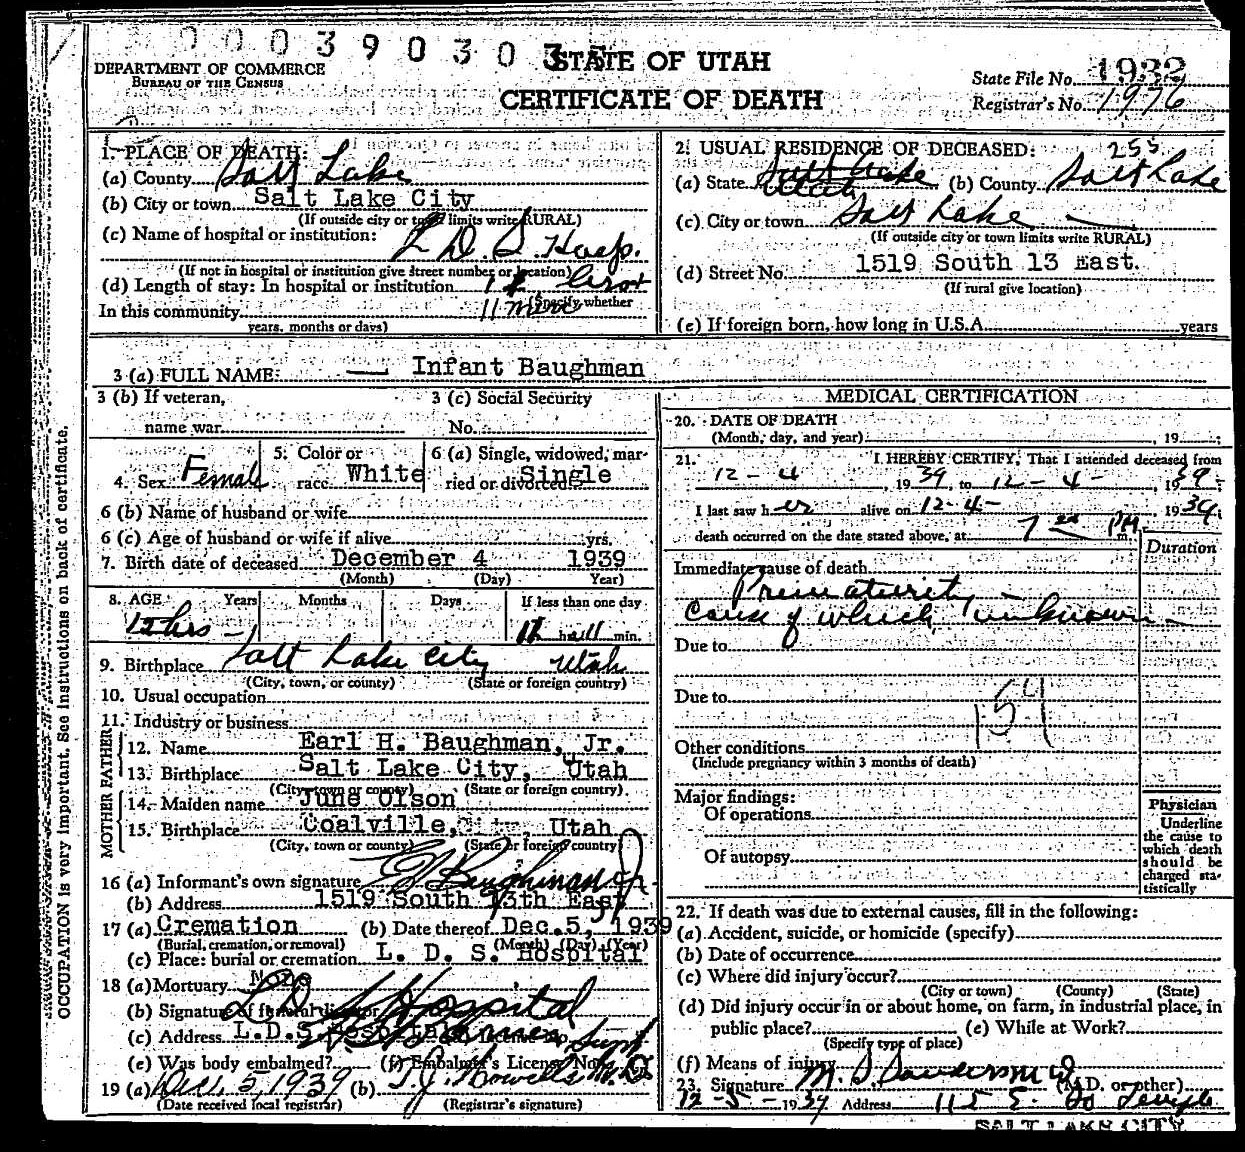 0003903035
STATE OF UTAH
CERTIFICATE OF DEATH
DEPARTMENT OF COMMERCE
BUREAU OF THE CENSUS
State File No. 1932
Registrar's No. 1976
1. PLACE OF DEATH:
(a) County Salt Lake
(b) City or town Salt Lake City
(If outside city or town limits write RURAL)
(c) Name of hospital or institution:
L. D. S. Hosp.
(If not in hospital or institution give street number or location)
(d) Length of stay: In hospital or institution
(Specify whether
In this community
years, months or days)
2. USUAL RESIDENCE OF DECEASED: 255
(a) State Salt Lake Utah (b) County Salt Lake
(c) City or town Salt Lake
(If outside city or town limits write RURAL)
(d) Street No. 1519 South 13 East.
(If rural give location)
(e) If foreign born, how long in U.S.A. years
3 (a) FULL NAME: Infant Baughman
3 (b) If veteran, name war
3 (c) Social Security No.
4. Sex Female
5. Color or race White
6 (a) Single, widowed, married or divorced Single
6 (b) Name of husband or wife
6 (c) Age of husband or wife if alive yrs.
7. Birth date of deceased December 4 1939
(Month) (Day) Year)
8. AGE Years Months Days If less than one day
12 hrs hr. min.
9. Birthplace Salt Lake City Utah
(City, town, or county) (State or foreign country)
10. Usual occupation
11. Industry or business
FATHER
12. Name Earl H. Baughman, Jr.
13. Birthplace Salt Lake City, Utah
(City, town or county) (State or foreign country)
MOTHER
14. Maiden name June Olson
15. Birthplace Coalville, Utah
(City, town or county) (State or foreign country)
16 (a) Informant's own signature E H Baughman Jr.
(b) Address 1519 South 13th East
17 (a) Cremation (b) Date thereof Dec. 5, 1939
(Burial, cremation, or removal) (Month) (Day) (Year)
(c) Place: burial or cremation L. D. S. Hospital
18 (a) Mortuary None
(b) Signature of funeral director L D S Hospital
(c) Address L.D.S. Hospital Supt
(e) Was body embalmed? (f) Embalmer's License No.
19 (a) Dec. 5, 1939 (b) T. J. Howells M. D.
(Date received local registrar) (Registrar's signature)
MEDICAL CERTIFICATION
20. DATE OF DEATH
(Month, day, and year) , 19 ;
21. I HEREBY CERTIFY, That I attended deceased from
12 - 4 , 1939, to 12 - 4 - , 1939.
I last saw her alive on 12-4- 1939;
death occurred on the date stated above, at 7 PM m.
Duration
Immediate cause of death
Prematurity -
cause of which unknown -
Due to
Due to
159
Other conditions
(Include pregnancy within 3 months of death)
Major findings:
Of operations
Of autopsy
Physician
Underline
the cause to
which death
should be
charged sta-
tistically
22. If death was due to external causes, fill in the following:
(a) Accident, suicide, or homicide (specify)
(b) Date of occurrence
(c) Where did injury occur?
(City or town) (County) (State)
(d) Did injury occur in or about home, on farm, in industrial place, in
public place? (e) While at Work?
(Specify type of place)
(f) Means of injury
23. Signature M. S Sanders M D (M.D. or other)
12 - 5 - 1939 Address 115 E. So Temple
SALT LAKE CITY
OCCUPATION is very important. See instructions on back of certificate.